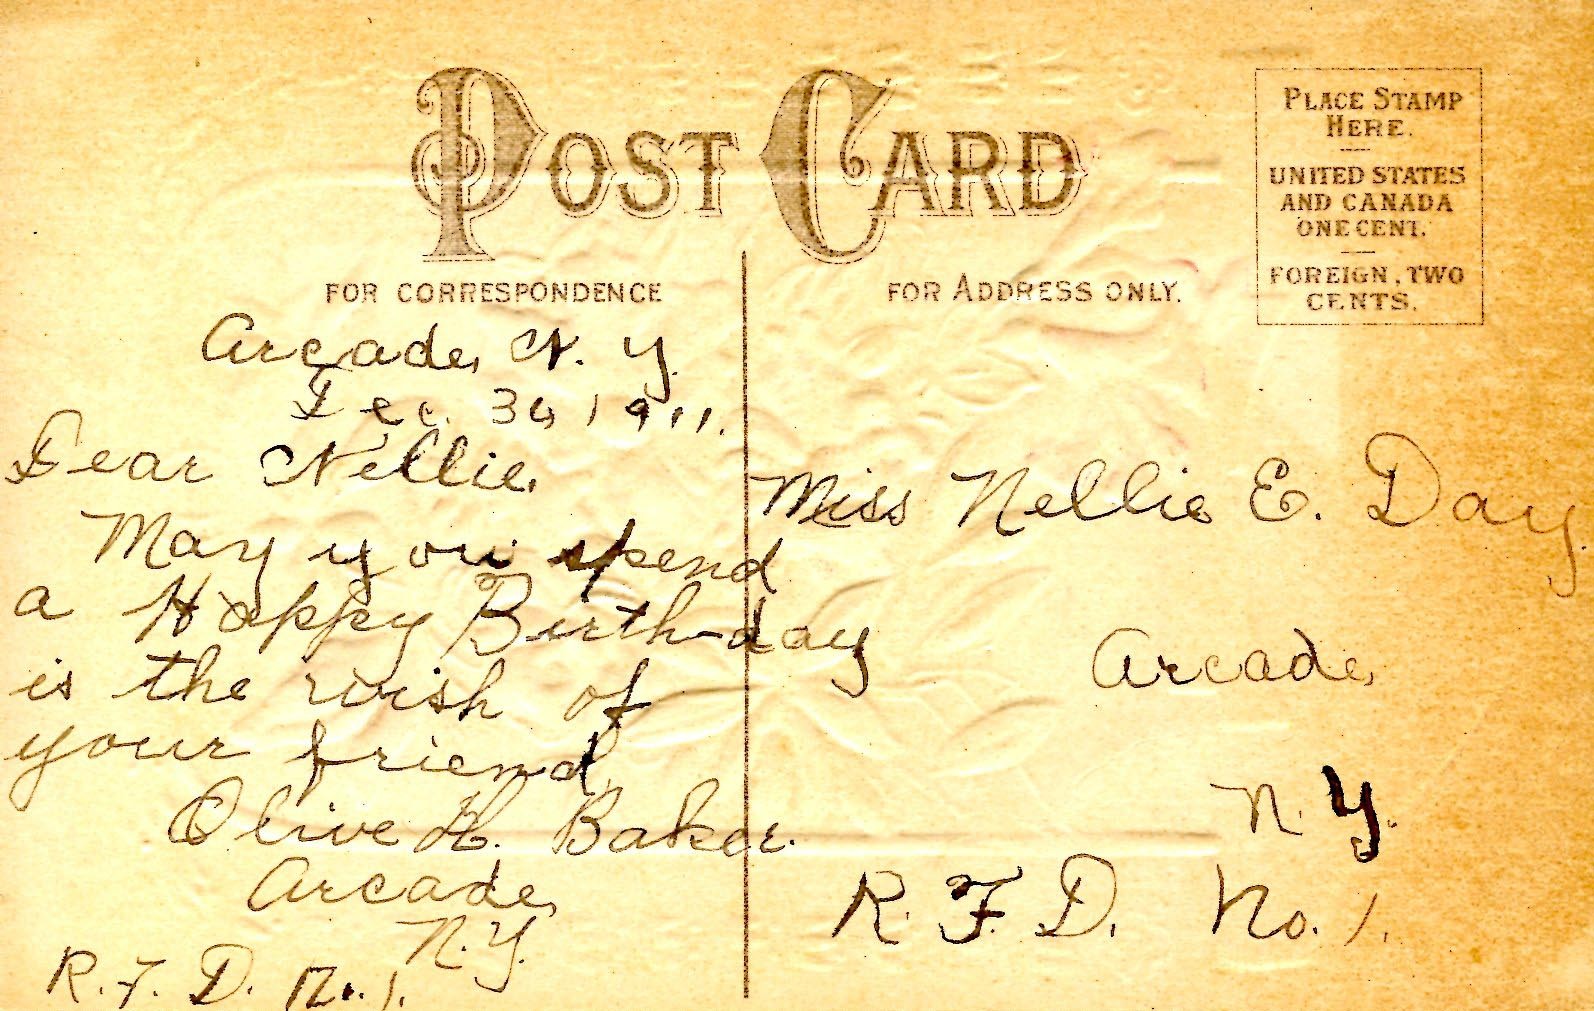 POST CARD
PLACE STAMP
HERE.
UNITED STATES
AND CANADA
ONE CENT.
FOREIGN, TWO
CENTS.
FOR CORRESPONDENCE
Arcade, N. Y.
Dec. 1911.
Dear Nellie,
May you spend
a Happy Birth-day
is the wish of
your friend,
Olive H. Baker.
Arcade,
N.Y.
R. F. D. No. 1.
FOR ADDRESS ONLY.
Miss Nellie E. Day.
Arcade,
N. Y.
R. F. D. No. 1.